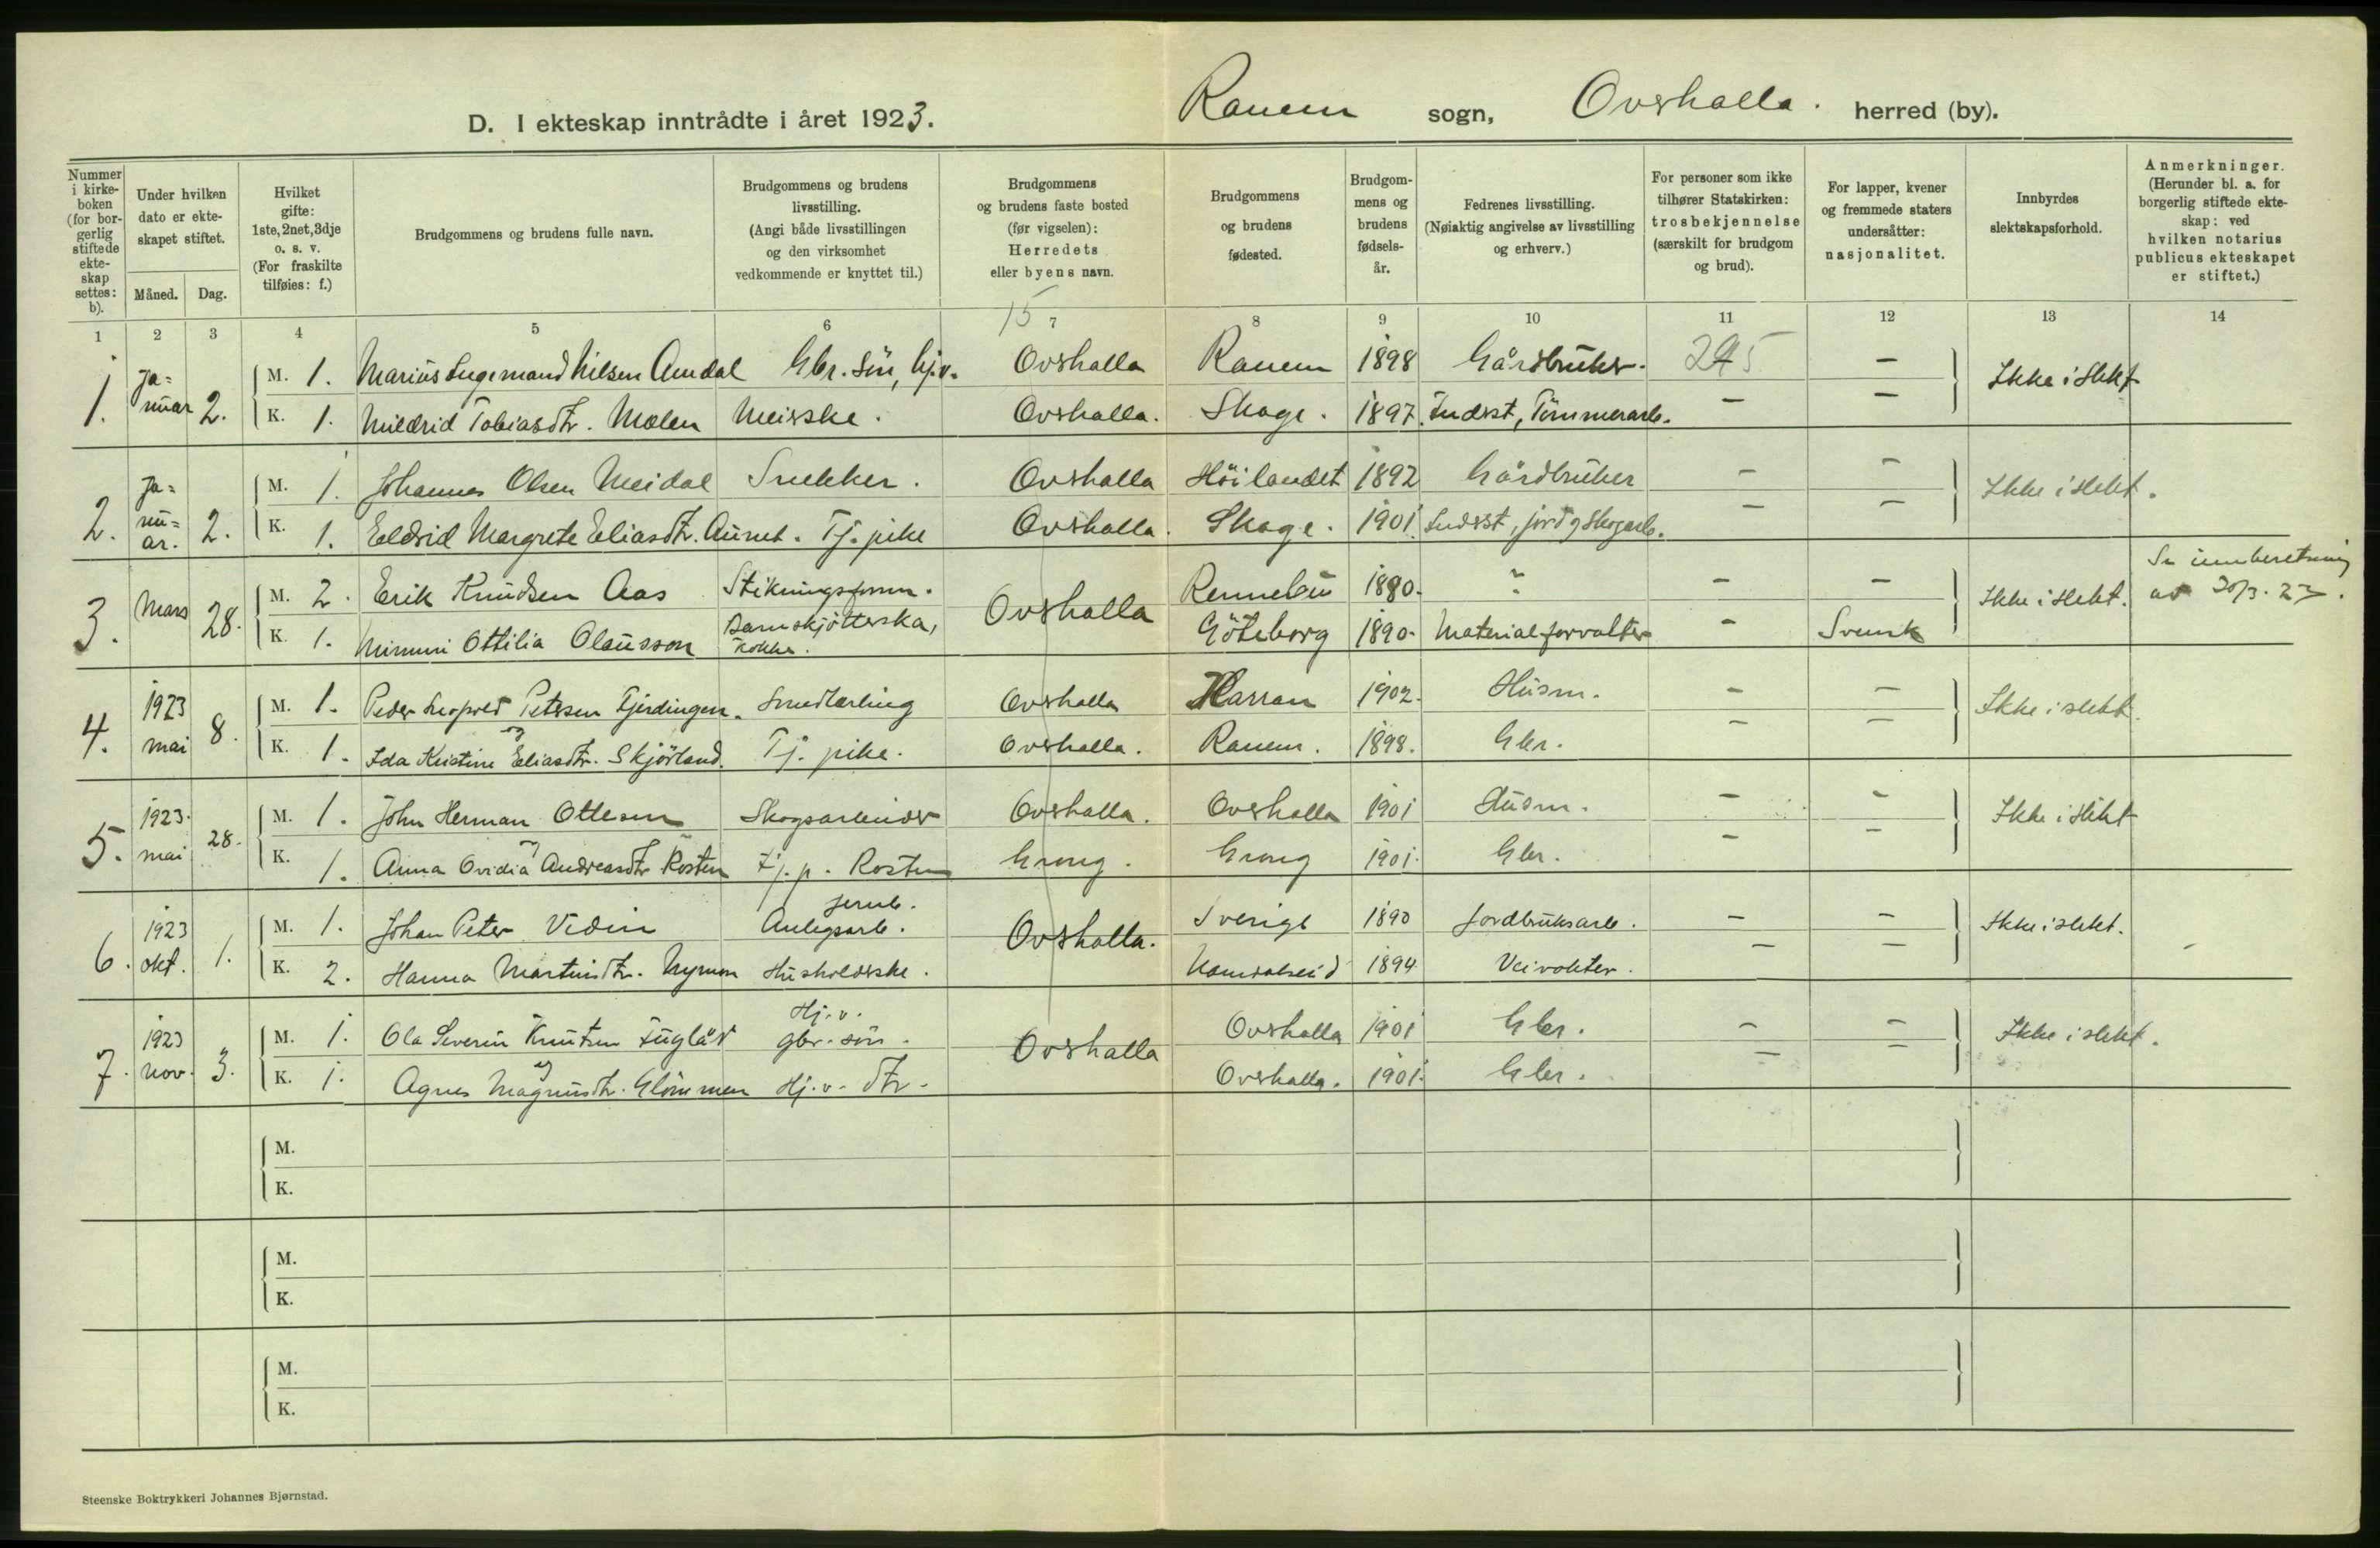 D. I ekteskap inntrådte i året 1923. Ranem sogn, Overhalla. herred (by).
Nummer i kirke-boken (for bor-gerlig stiftede ekte-skap settes: b).
Under hvilken dato er ekte-skapet stiftet.
Måned. Dag.
Hvilket gifte: 1ste, 2net, 3dje o. s. v. (For fraskilte tilføies: f.)
Brudgommens og brudens fulle navn.
Brudgommens og brudens livsstilling. (Angi både livsstillingen og den virksomhet vedkommende er knyttet til.)
Brudgommens og brudens faste bosted (før vigselen): Herredets eller byens navn.
Brudgommens og brudens fødested.
Brudgom-mens og brudens fødsels-år.
Fedrenes livsstilling. (Nøiaktig angivelse av livsstilling og erhverv.)
For personer som ikke tilhører Statskirken: trosbekjennelse (særskilt for brudgom og brud).
For lapper, kvener og fremmede staters undersåtter: nasjonalitet.
Innbyrdes slektskapsforhold.
Anmerkninger. (Herunder bl. a. for borgerlig stiftede ekte-skap: ved hvilken notarius publicus ekteskapet er stiftet.)
15
1 2 3 4 5 6 7 8 9 10 11 12 13 14
1. Ja=nuar 2. M. 1. Marius Ingemand Nilsen Amdal Gbr. sön, hj.v. Overhalla Ranem 1898 Gårdbruker. 245 – Ikke i slekt
K. 1. Mildrid Tobiasdtr. Mølen Meierske. Overhalla. Skage. 1897. Inderst, Tömmerarb. – –
2. Ja=nu=ar. 2. M. 1. Johannes Olsen Meidal Snekker. Overhalla Höilandet 1892 Gårdbruker – – Ikke i slekt.
K. 1. Eldrid Margrete Eliasdtr. Aunet. Tj. pike Overhalla. Skage. 1901. Inderst, jord og skogarb. – –
3. Mars 28. M. 2. Erik Knudsen Aas Stikningsform. Overhalla Rennebu 1880. " – – Ikke i slekt. Se innberetning av 30/3. 23.
K. 1. Mimmi Ottilia Olausson Barnskjötterska, kokke. Göteborg 1890. Materialforvalter – Svensk
4. 1923 mai 8. M. 1. Peder Leopold Petersen Fjerdingen. Smedlærling Overhalla Harran 1902. Husm. – – Ikke i slekt.
K. 1. Ida Kristine Eliasdtr. Skjörland. Tj. pike. Overhalla. Ranem. 1898. Gbr. – –
5. 1923. mai 28. M. 1. John Herman Ottesen Skogsarbeider Overhalla. Overhalla 1901 Husm. – – Ikke i slekt
K. 1. Anna Ovidia Andreasdtr Rosten tj. p. Rosten Grong. Grong 1901. Gbr. – –
6. 1923 okt. 1. M. 1. Johan Peter Vidin Jernb. Anlegsarb. Overhalla. Sverige 1890 Jordbruksarb. – – Ikke i slekt.
K. 2. Hanna Martinsdtr. Nymon Husholderske. Namdalseid 1894 Veivokter. – – –
7. 1923 nov. 3. M. 1. Ola Severin Knutsen Fuglår Hj. v. gbr. sön. Overhalla Overhalla 1901 Gbr. – – Ikke i slekt.
K. 1. Agnes Magnusdtr. Glömmen Hj. v. dtr. Overhalla. 1901. Gbr. – –
M.
K.
M.
K.
M.
K.
Steenske Boktrykkeri Johannes Bjørnstad.